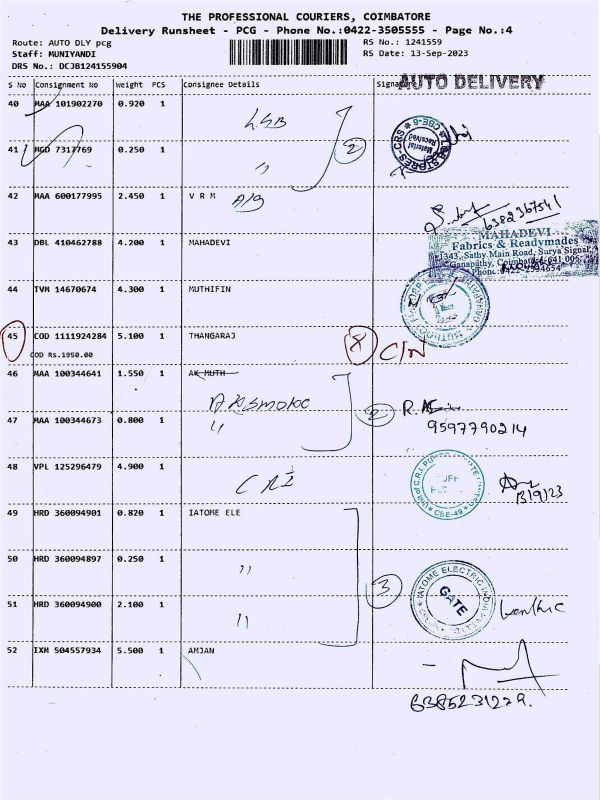 THE PROFESSIONAL COURIERS, COIMBATORE
Delivery Runsheet - PCG - Phone No.:0422-3505555 - Page No.:4
Route: AUTO DLY pcg RS No.: 1241559
Staff: MUNIYANDI RS Date: 13-Sep-2023
DRS No.: DCJB124155904
AUTO DELIVERY
S No Consignment No Weight PCS Consignee Details
40 MAA 101902270 0.920 1 LSB
CRS Material Received
41 MGD 7317769 0.250 1 "
2
42 MAA 600177995 2.450 1 V R M
6382367541
43 DBL 410462788 4.200 1 MAHADEVI
MAHADEVI
Fabrics & Readymades
1343, Sathy Main Road, Surya Signal,
Ganapathy, Coimbatore-641 006.
44 TVM 14670674 4.300 1 MUTHIFIN
45 COD 1111924284 5.100 1 THANGARAJ
COD Rs.1950.00
C/N
46 MAA 100344641 1.550 1 AK MUTH
2
47 MAA 100344673 0.800 1 "
9597790214
48 VPL 125296479 4.900 1 CRI
CBE-49
13/9/23
49 HRD 360094901 0.820 1 IATOME ELE
50 HRD 360094897 0.250 1 "
3
IATOME ELECTRIC INDIA
GATE
51 HRD 360094900 2.100 1 "
52 IXM 504557934 5.500 1 AMJAN
6385231229.